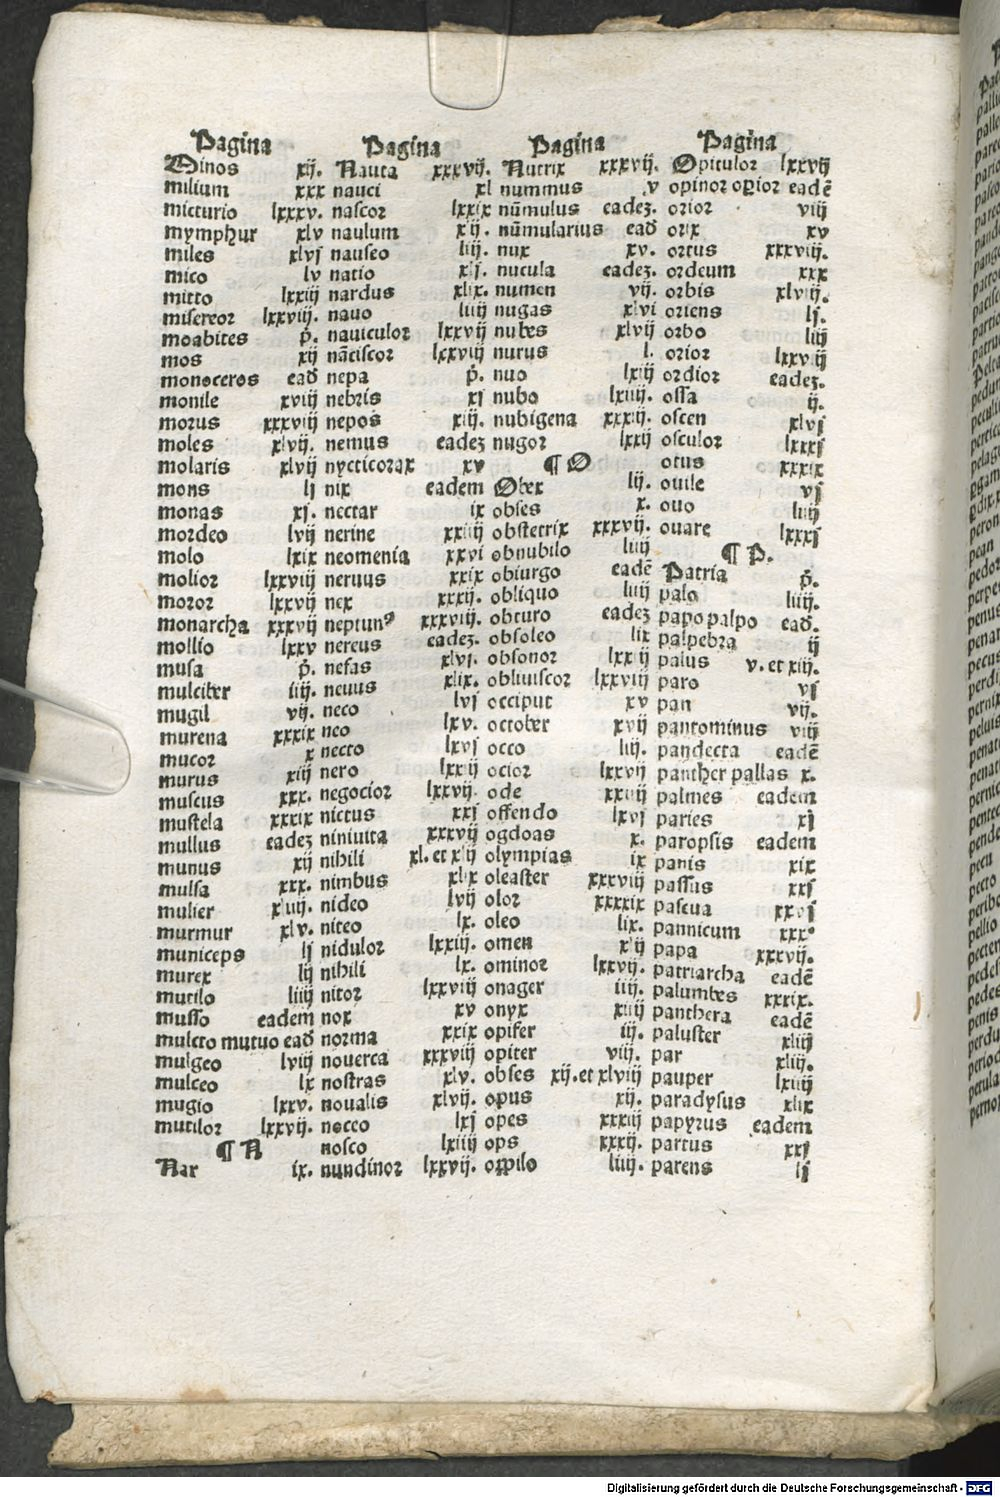 Pagina
Minos xij.
milium xxx
micturio lxxxv.
mymphur xlv
miles xlvj
mico lv
mitto lxxiij
misereor lxxviij.
moabites p̃.
mos xij
monoceros ead̃
monile xviij
morus xxxviij
moles xlvij.
molaris xlvij
mons lj
monas xj.
mordeo lvij
molo lxix
molior lxxviij
moror lxxvij
monarcha xxxvij
mollio lxxv
musa p̃.
mulciber iiij.
mugil vij.
murena xxxix
mucor x
murus xiij
muscus xxx.
mustela xxxix
mullus eadeʒ
munus xij
mulsa xxx.
mulier xliij.
murmur xlv.
municeps lj
murex lij
mutilo liiij
musso eadem
mulcto mutuo ead̃
mulgeo lviij
mulceo lx
mugio lxxv.
mutilor lxxvij.
¶ N
Nar ix.
Pagina
Nauta xxxvij.
nauci xl
nascor lxxix
naulum xij.
nauseo liij.
natio xij.
nardus xlix.
nauo liiij
nauiculor lxxvij
nãciscor lxxviij
nepa p̃.
nebris xj
nepos xij.
nemus eadeʒ
nycticorax xv
nix eadem
nectar ix
nerine xxiiij
neomenia xxvi
neruus xxix
nex xxxij.
neptunꝰ xxxviij.
nereus eadeʒ.
nefas xlvj.
neuus xlix.
neco lvj
neo lxv.
necto lxvj
nero lxxij
negocior lxxvij.
nictus xxj
niniuita xxxvij
nihili xl. et xlij
nimbus xlix
nideo lvij
niteo lx.
nidulor lxxiij.
nihili lx.
nitor lxxviij
nox xv
norma xxix
nouerca xxxviij
nostras xlv.
noualis xlvij.
nocco lxj
nosco lxiiij
nundinor lxxvij.
Pagina
Nutrix xxxvij.
nummus v
nũmulus eadeʒ.
nũmularius ead̃
nux xv.
nucula eadeʒ.
numen vij.
nugas xlvi
nubes xlvij
nurus l.
nuo lxiij
nubo lxiiij.
nubigena xxxij.
nugor lxxij
¶ O
Obex lij.
obses x.
obstetrix xxxvij.
obnubilo liiij
obiurgo eadẽ
obliquo liiij
obturo eadeʒ
obsoleo lix
obsonor lxxiij
obliuiscor lxxviij
occiput xv
october xvij
occo liij.
ocior lxxvij
ode xxiiij
offendo lxvj
ogdoas x.
olympias ix
oleaster xxxviij
olor xxxxix
oleo lix.
omen xlij
ominor lxxvij.
onager iiij.
onyx xiiij
opifer iij.
opiter viij.
obses xij.et xlviij
opus xij.
opes xxxiij
ops xxxij.
oppilo liiij.
Pagina
Opitulor lxxvij
opinor oꝑior eadẽ
orior viij
orix xv
ortus xxxviij.
ordeum xxx
orbis xlviij.
oriens lj.
orbo liiij
orior lxxviij
ordior eadeʒ.
ossa ij.
oscen xlvj
osculor lxxxj
otus xxxix
ouile vj
ouo liiij
ouare lxxxj
¶ P.
Patria p̃.
palo liiij.
papo palpo ead̃.
palpebra ij
palus v. et xiij.
paro vj
pan vij.
pantominus viij
pandecta eadẽ
panther pallas x.
palmes eadem
paries xj
paropsis eadem
panis xix
passus xxj
pascua xxvj
pannicum xxx
papa xxxvij.
patriarcha eadẽ
palumbes xxxix.
panthera eadẽ
paluster xliij
par xliij.
pauper lxiiij
paradysus xlix
papyrus eadem
partus xxj
parens lj
Digitalisierung gefördert durch die Deutsche Forschungsgemeinschaft - DFG